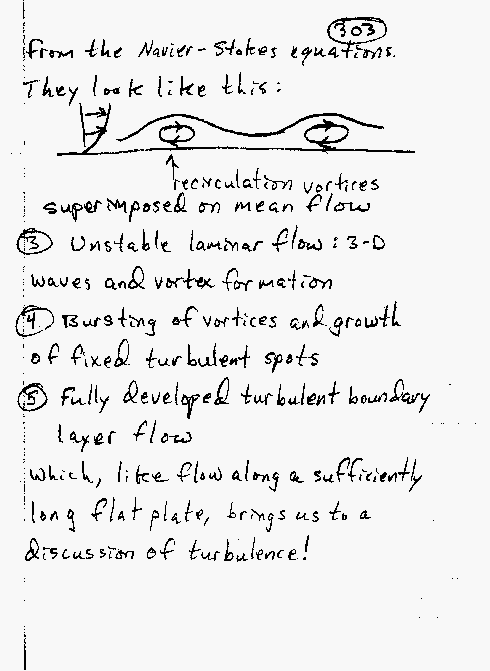 303
from the Navier-Stokes equations.
They look like this:
recirculation vortices
superimposed on mean flow
③ Unstable laminar flow: 3-D
waves and vortex formation
④ Bursting of vortices and growth
of fixed turbulent spots
⑤ Fully developed turbulent boundary
layer flow
which, like flow along a sufficiently
long flat plate, brings us to a
discussion of turbulence!